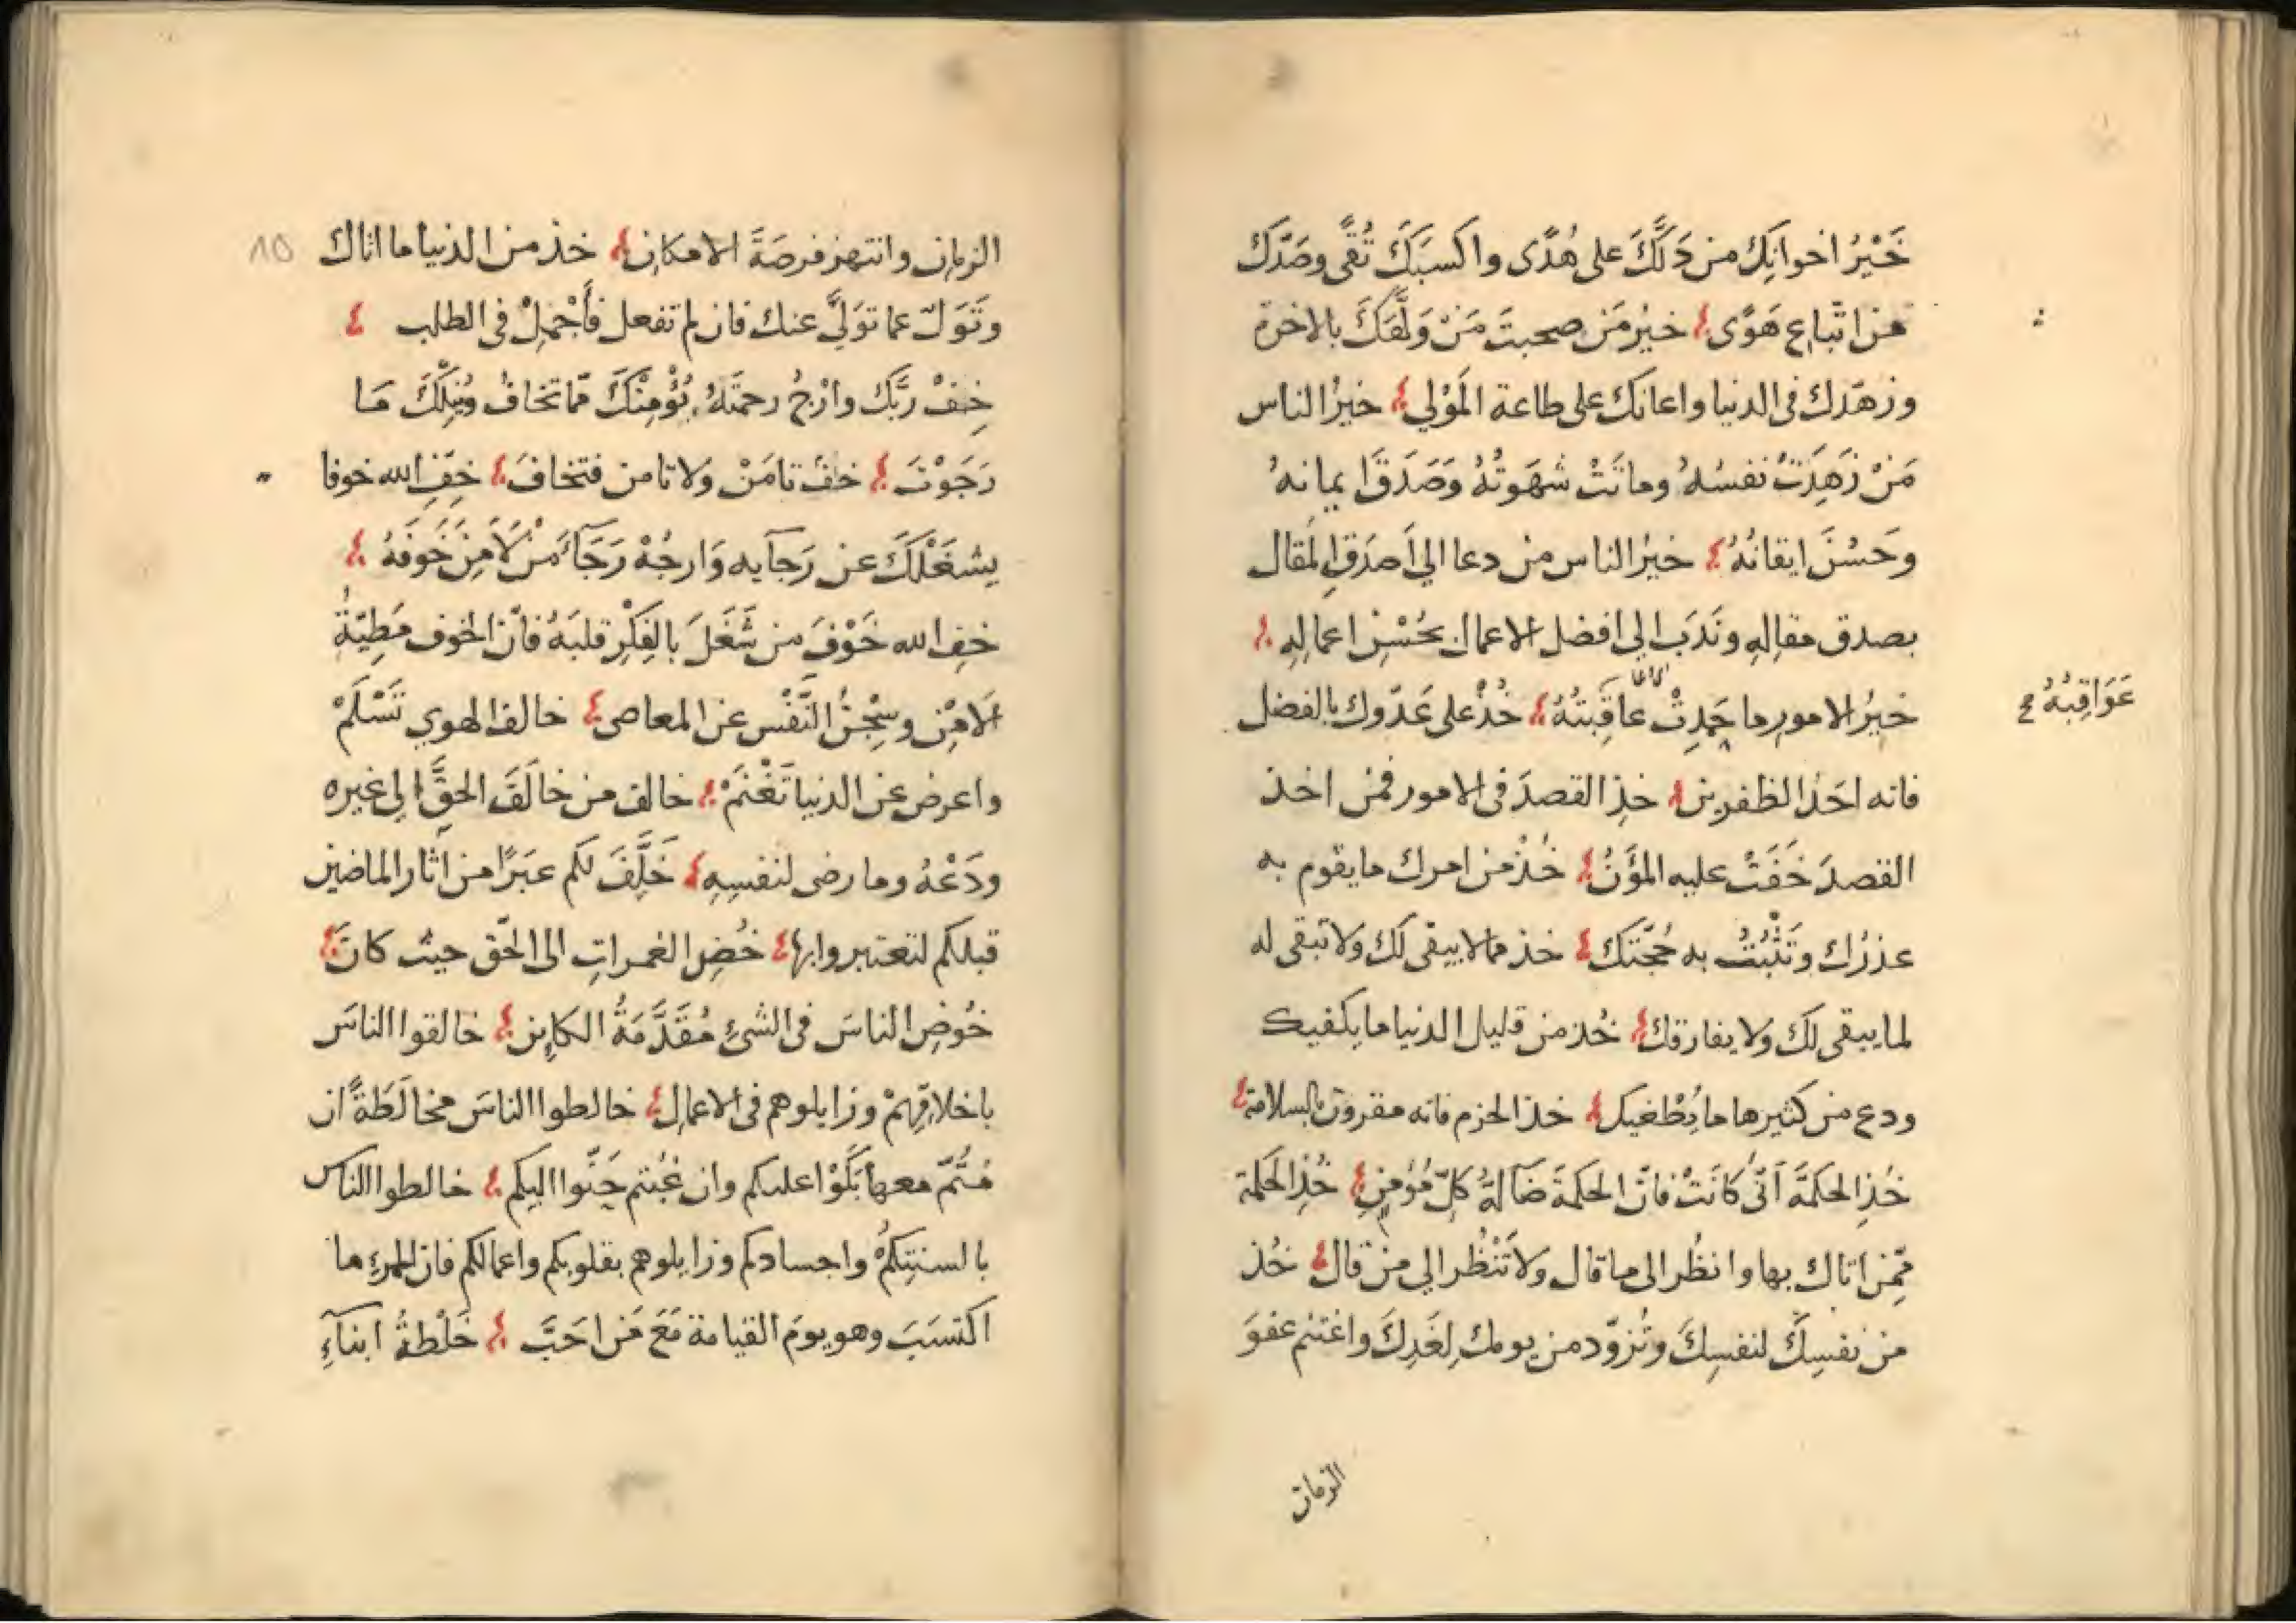 خَيْرُ اخوانِكَ من دَلَّكَ على هُدًى واكسبَكَ تُقًى وصَدَّكَ
عن اتّباع هَوًى خيرُ مَن صحبتَ مَنْ وَلَّهَكَ بالاخرة
وزهّدك فى الدنيا واعانك على طاعة المَوْلي خيرُ الناس
مَنْ زَهِدَتْ نفسُهُ وماتَتْ شهوَتُهُ وَصَدَقَ ايمانهُ
وحَسُنَ ايقانُهُ خيرُ الناس من دعا الي اَصدَقِ المَقال
بصدق مقالِهِ ونَدَب الي افضل الاعمال بحُسْنِ اعمالِهِ
خيرُ الامور ما حَمِدتْ عاقِبتُهُ خُذْ على عَدّوك بالفضل
عَوَاقِبُهُ
فانه احَدُ الظفرين خذِ القصدَ فى الامور فمن اخذ
القصدَ خَفَتْ عليه المُؤَنُ خُذْ من امرك ما يقوم به
عذرُك وتَثْبُتُ به حُجّتَكَ خذ مما لا يبقى لكَ ولا تبقى له
لما يبقى لكَ ولا يفارقك خُذ من قليل الدنيا ما يكفيك
ودع من كثيرها ما يُطْغيك خذ الحزم فانه مقرون بالسلامة
خُذِ الحكمَّةَ اَنّى كانَتْ فانّ الحكمةَ ضآلةُ كلّ مُؤمنٍ خُذِ الحَكمة
مّمن اتاك بها وانظُر الى ما قال ولا تَنْظُر الي من قال خُذ
من نفسِكَ لنفسِكَ وتُزوّد من يومك لِغَدِكَ واغتنم عفوَ
الزمان
الزمان وانتهز فرصَةَ الامكان خذ من الدنيا ما اتاك
10
وتَوَلّ عما توَلَّي عنك فان لم تفعل فَأَجْمِلْ فى الطلب
خِفْ رَبَّك وارْجُ رحمتَهُ يُؤْمِنْكَ مّما تخافُ ويُنِلْكَ مَا
رَجَوْتَ خفْ تامَنْ ولا تامن فتخافَ خِفِ الله خوفا
يشغَلَكَ عن رَجآيه وَارجُهْ رَجَآءَ مَنْ لَا مِنَ خَوفَهُ
خفِ الله خَوْفَ من شَغَلَ بالفِكْرِ قلبَهُ فانّ الخوف مَطِيّةُ
الامْنِ وسِجْنُ النَّفْسِ عن المعاصى خالف الهوي تَسْلَمْ
واعرض عن الدنيا تَغْنَمْ خالف من خالَفَ الحقَّ الي غيره
ودَعْهُ وما رضى لنفسِهِ خَلَّفَ لكم عبَرًا من اثار الماضين
قبلكم لتعتبروا بها خُضِ الغمراتِ الى الحّق حيث كانَ
خُوضِ الناسَ فى الشئِ مُقَدَّمَةُ الكاين خالقوا الناسَ
باخلاقِهِمْ وزايلوهم فى الاعمال خالطوا الناسَ مخالَطَةً ان
مُتُّمّ معها بَكَوْا عليكم وان غبْتم حَنّوا اليكم خالطوا الناس
بالسنتِكُم واجسادكم وزايلوهم بقلوبكم واعمالكم فان للمرءِ ما
اكتسَبَ وهو يومَ القيامة مَعَ مَن احَبَّ خَلْطةُ ابنآءِ